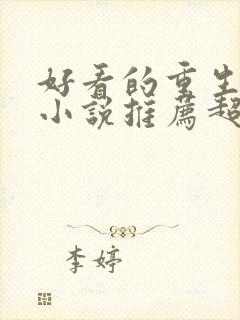 好看的重生
小说推薦超
李婷